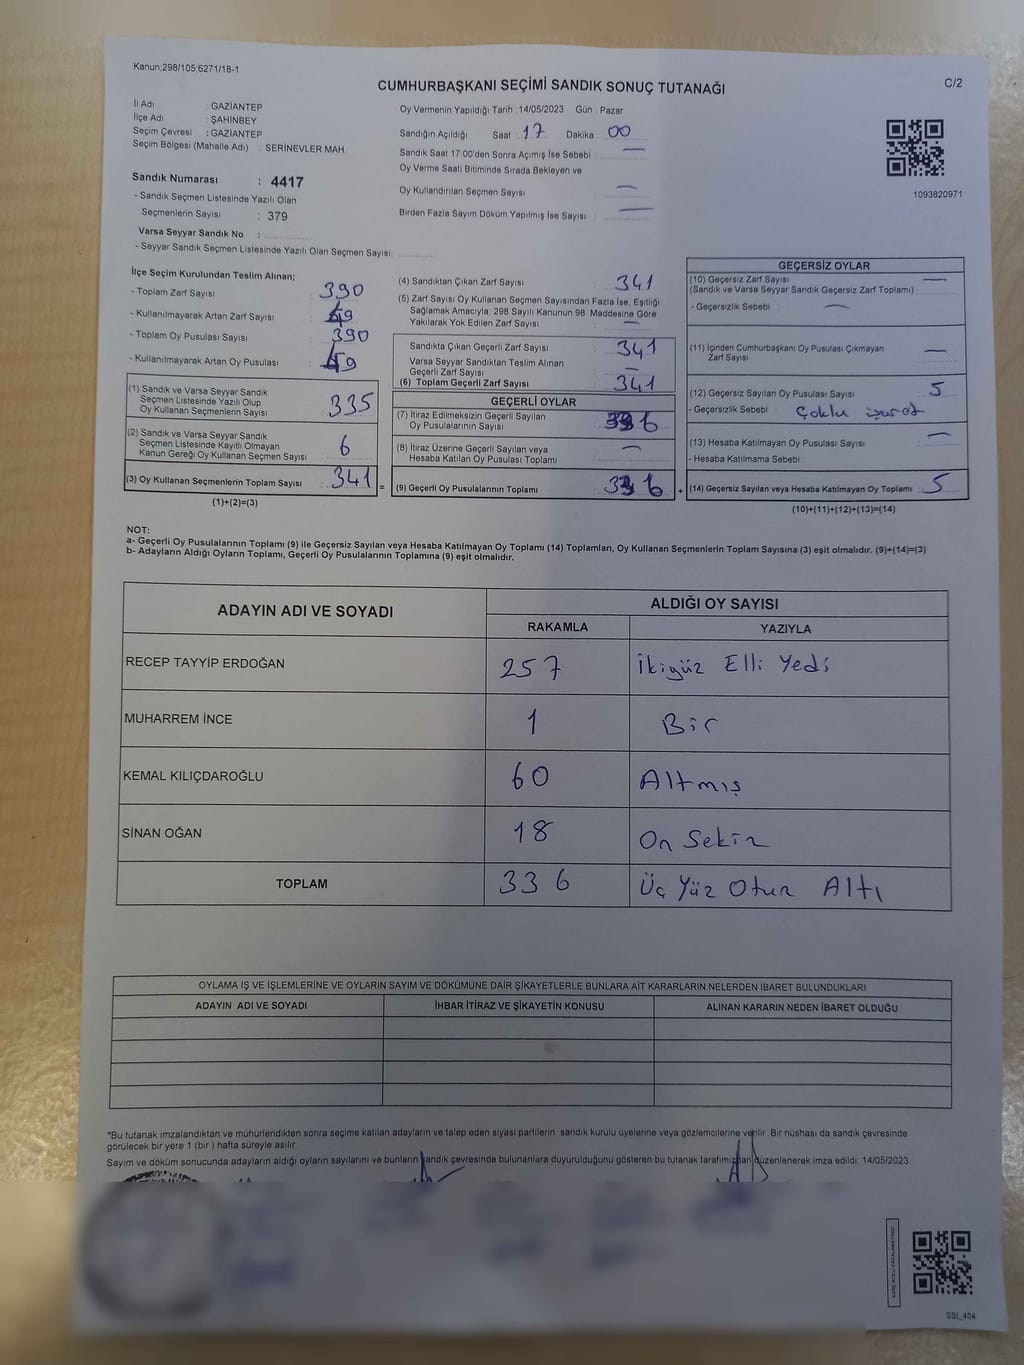 Kanun;298/105;6271/18-1
CUMHURBAŞKANI SEÇİMİ SANDIK SONUÇ TUTANAĞI
C/2
İl Adı : GAZİANTEP
İlçe Adı : ŞAHİNBEY
Seçim Çevresi : GAZİANTEP
Seçim Bölgesi (Mahalle Adı) : SERİNEVLER MAH.
Sandık Numarası : 4417
- Sandık Seçmen Listesinde Yazılı Olan
Seçmenlerin Sayısı : 379
Varsa Seyyar Sandık No :
- Seyyar Sandık Seçmen Listesinde Yazılı Olan Seçmen Sayısı:
Oy Vermenin Yapıldığı Tarih :14/05/2023 Gün : Pazar
Sandığın Açıldığı Saat : 17 Dakika : 00
Sandık Saat 17:00'den Sonra Açımış İse Sebebi : —
Oy Verme Saati Bitiminde Sırada Bekleyen ve
Oy Kullandırılan Seçmen Sayısı : —
Birden Fazla Sayım Döküm Yapılmış İse Sayısı : —
1093820971
İlçe Seçim Kurulundan Teslim Alınan;
- Toplam Zarf Sayısı : 390
- Kullanılmayarak Artan Zarf Sayısı : 49
- Toplam Oy Pusulası Sayısı : 390
- Kullanılmayarak Artan Oy Pusulası : 49
(1) Sandık ve Varsa Seyyar Sandık
Seçmen Listesinde Yazılı Olup
Oy Kullanan Seçmenlerin Sayısı : 335
(2) Sandık ve Varsa Seyyar Sandık
Seçmen Listesinde Kayıtlı Olmayan
Kanun Gereği Oy Kullanan Seçmen Sayısı : 6
(3) Oy Kullanan Seçmenlerin Toplam Sayısı : 341 =
(1)+(2)=(3)
(4) Sandıktan Çıkan Zarf Sayısı : 341
(5) Zarf Sayısı Oy Kullanan Seçmen Sayısından Fazla İse, Eşitliği
Sağlamak Amacıyla; 298 Sayılı Kanunun 98. Maddesine Göre
Yakılarak Yok Edilen Zarf Sayısı : —
Sandıkta Çıkan Geçerli Zarf Sayısı : 341
Varsa Seyyar Sandıktan Teslim Alınan
Geçerli Zarf Sayısı : —
(6) Toplam Geçerli Zarf Sayısı : 341
GEÇERLİ OYLAR
(7) İtiraz Edilmeksizin Geçerli Sayılan
Oy Pusulalarının Sayısı : 336
(8) İtiraz Üzerine Geçerli Sayılan veya
Hesaba Katılan Oy Pusulası Toplamı : —
(9) Geçerli Oy Pusulalarının Toplamı : 336 +
GEÇERSİZ OYLAR
(10) Geçersiz Zarf Sayısı : —
(Sandık ve Varsa Seyyar Sandık Geçersiz Zarf Toplamı) :
- Geçersizlik Sebebi : —
(11) İçinden Cumhurbaşkanı Oy Pusulası Çıkmayan
Zarf Sayısı : —
(12) Geçersiz Sayılan Oy Pusulası Sayısı : 5
- Geçersizlik Sebebi : Çoklu işaret
(13) Hesaba Katılmayan Oy Pusulası Sayısı : —
- Hesaba Katılmama Sebebi :
(14) Geçersiz Sayılan veya Hesaba Katılmayan Oy Toplamı : 5
(10)+(11)+(12)+(13)=(14)
NOT:
a- Geçerli Oy Pusulalarının Toplamı (9) ile Geçersiz Sayılan veya Hesaba Katılmayan Oy Toplamı (14) Toplamları, Oy Kullanan Seçmenlerin Toplam Sayısına (3) eşit olmalıdır. (9)+(14)=(3)
b- Adayların Aldığı Oyların Toplamı, Geçerli Oy Pusulalarının Toplamına (9) eşit olmalıdır.
ADAYIN ADI VE SOYADI ALDIĞI OY SAYISI
RAKAMLA YAZIYLA
RECEP TAYYİP ERDOĞAN 257 İkiyüz Elli Yedi
MUHARREM İNCE 1 Bir
KEMAL KILIÇDAROĞLU 60 Altmış
SİNAN OĞAN 18 On Sekiz
TOPLAM 336 Üç Yüz Otuz Altı
OYLAMA İŞ VE İŞLEMLERİNE VE OYLARIN SAYIM VE DÖKÜMÜNE DAİR ŞİKAYETLERLE BUNLARA AİT KARARLARIN NELERDEN İBARET BULUNDUKLARI
ADAYIN ADI VE SOYADI İHBAR İTİRAZ VE ŞİKAYETİN KONUSU ALINAN KARARIN NEDEN İBARET OLDUĞU
*Bu tutanak imzalandıktan ve mühürlendikten sonra seçime katılan adayların ve talep eden siyasi partilerin sandık kurulu üyelerine veya gözlemcilerine verilir. Bir nüshası da sandık çevresinde
görülecek bir yere 1 (bir ) hafta süreyle asılır.
Sayım ve döküm sonucunda adayların aldığı oyların sayılarını ve bunların sandık çevresinde bulunanlara duyurulduğunu gösteren bu tutanak tarafımızdan düzenlenerek imza edildi. 14/05/2023
SSI_404